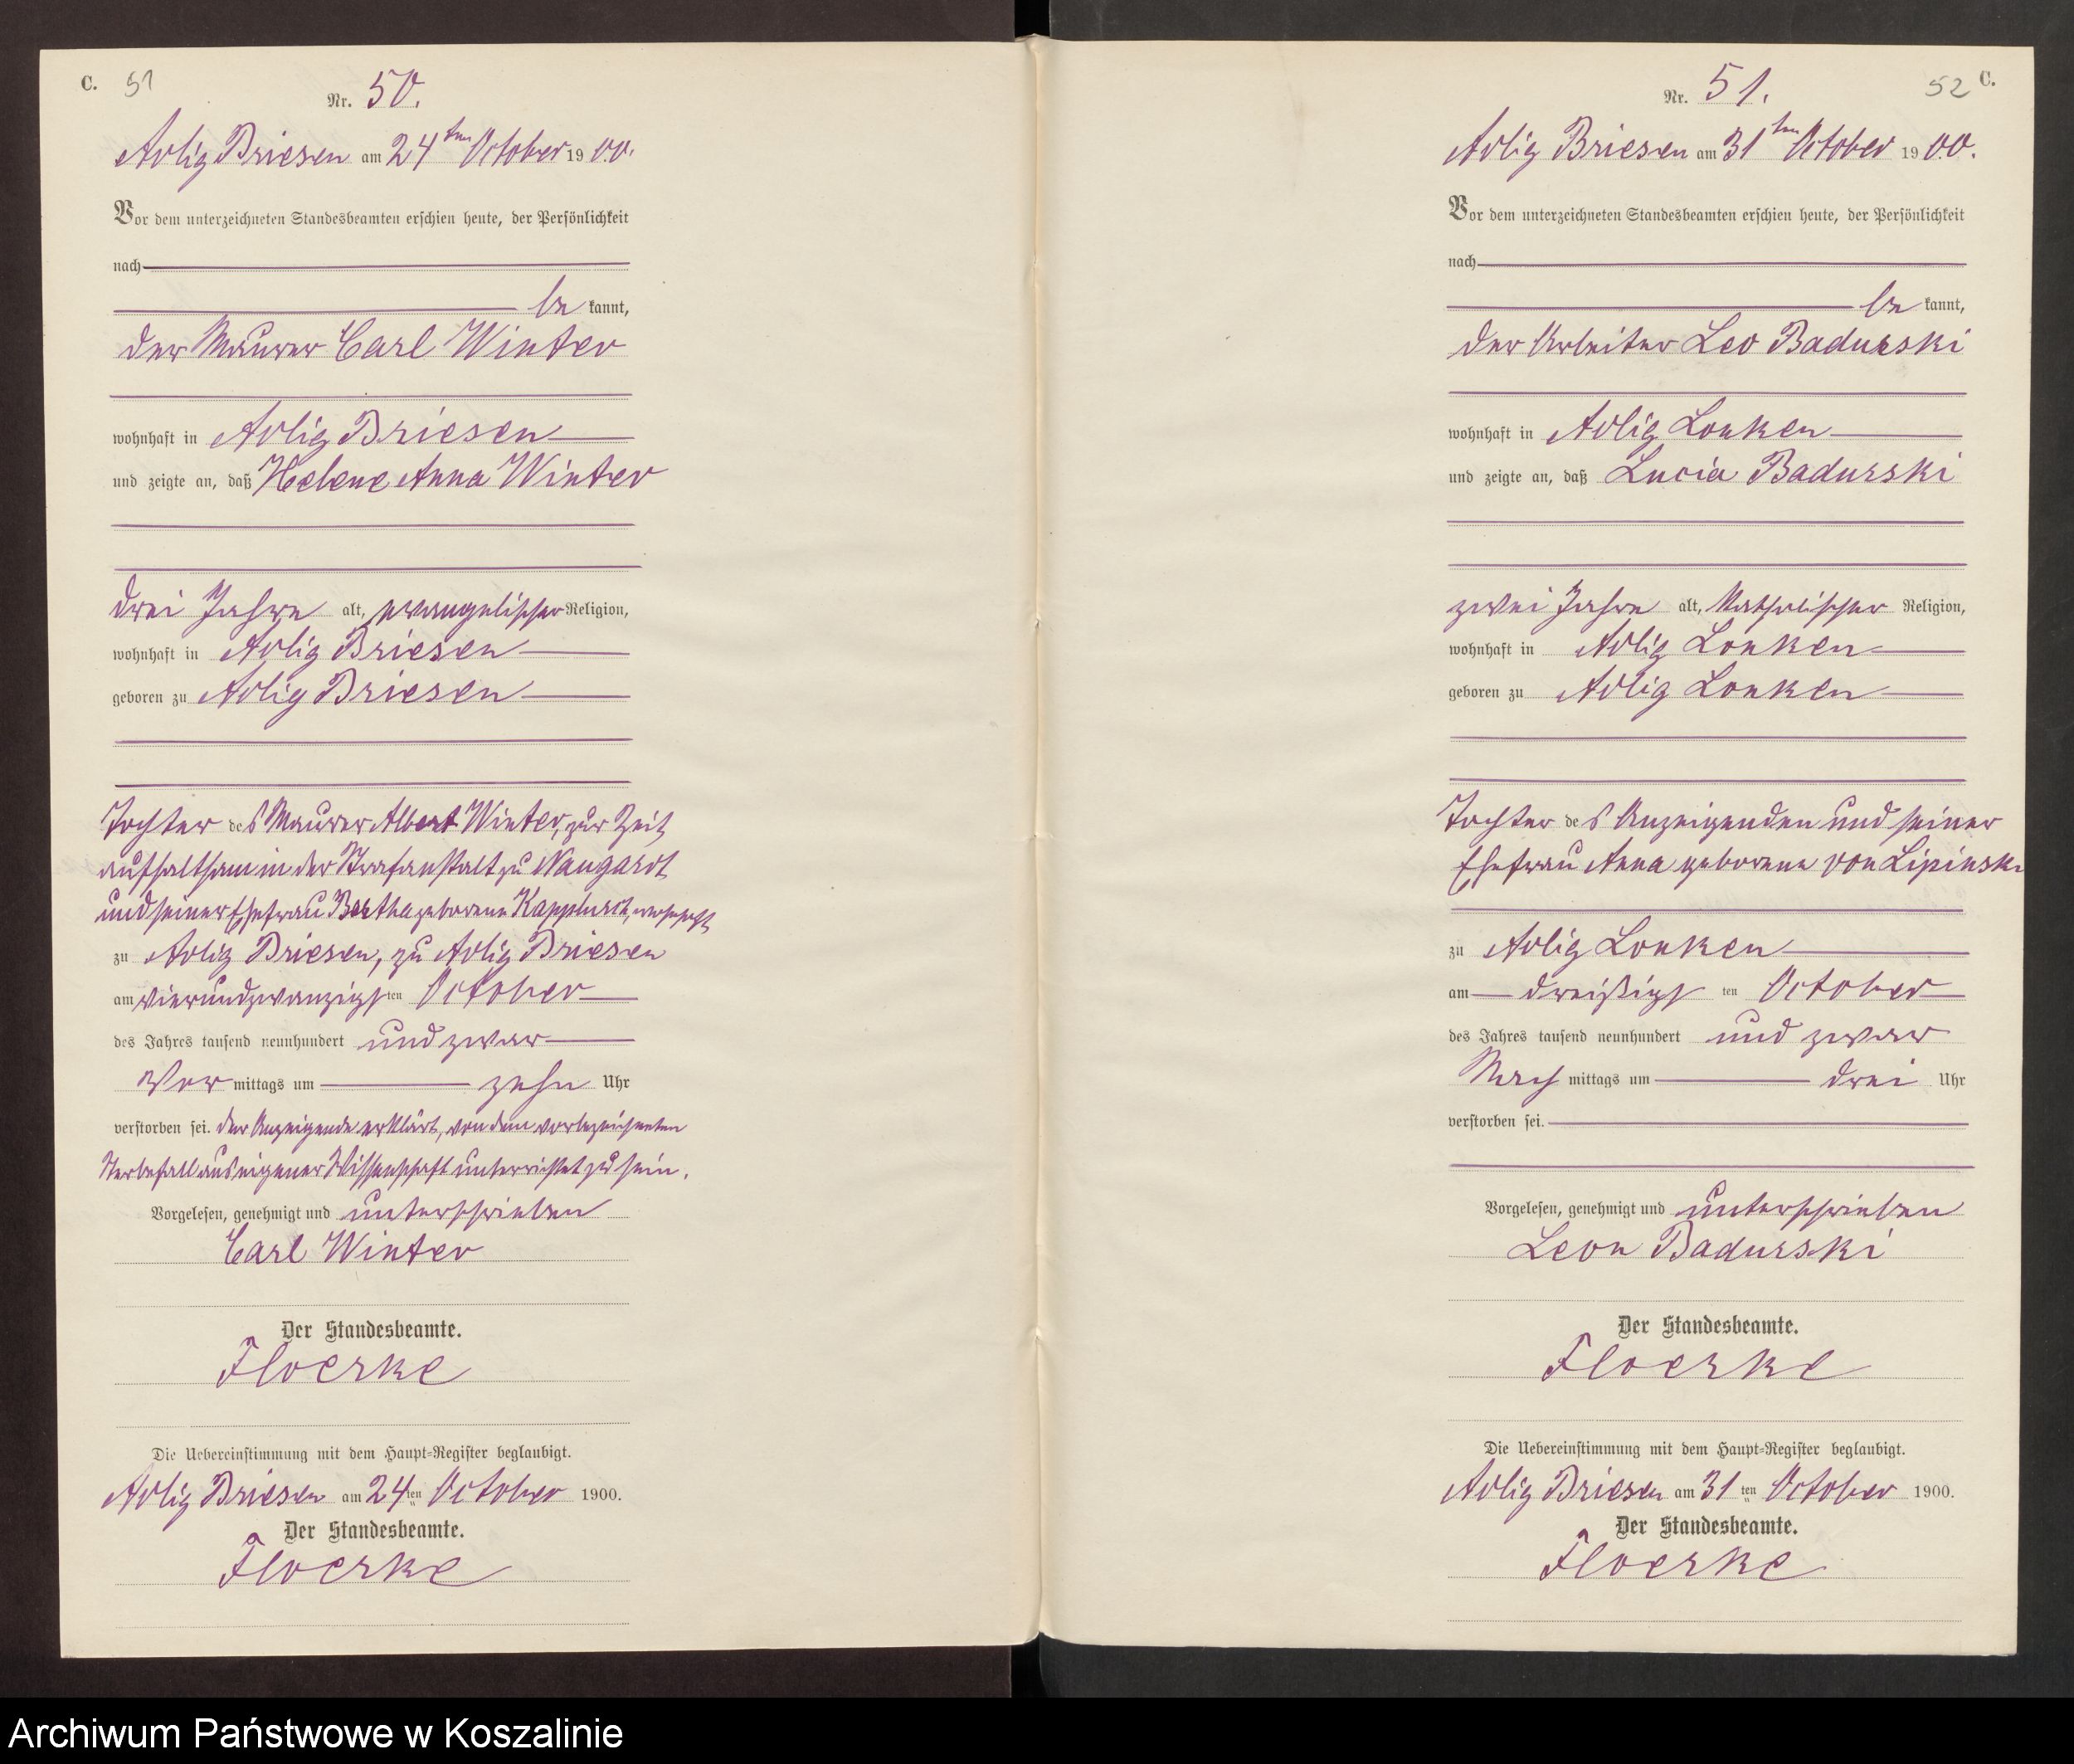 C. 51
Nr. 50.
Adlig Briesen am 24ten October 1900.
Vor dem unterzeichneten Standesbeamten erschien heute, der Persönlichkeit
nach
be kannt,
der Maurer Carl Winter
wohnhaft in Adlig Briesen
und zeigte an, daß Helene Anna Winter
drei Jahre alt, evangelischer Religion,
wohnhaft in Adlig Briesen
geboren zu Adlig Briesen
Tochter des Maurer Albert Winter, zur Zeit
aufhaltsam in der Strafanstalt zu Naugardt
und seiner Ehefrau Bertha geborene wohnhaft
zu Adlig Briesen, zu Adlig Briesen
am vierundzwanzigsten October
des Jahres tausend neunhundert und zwar
Vor mittags um zehn Uhr
verstorben sei. Der Anzeigende erklärt, von dem vorbezeichneten
Sterbefall aus eigener Wissenschaft unterrichtet zu sein.
Vorgelesen, genehmigt und unterschrieben
Carl Winter
Der Standesbeamte.
Floerke
Die Uebereinstimmung mit dem Haupt-Register beglaubigt.
Adlig Briesen am 24ten October 1900.
Der Standesbeamte.
Floerke
Nr. 51. 52 C.
Adlig Briesen am 31ten October 1900.
Vor dem unterzeichneten Standesbeamten erschien heute, der Persönlichkeit
nach
be kannt,
der Arbeiter Leo Badurski
wohnhaft in Adlig Lonken
und zeigte an, daß Lucia Badurski
zwei Jahre alt, Katholischer Religion,
wohnhaft in Adlig Lonken
geboren zu Adlig Lonken
Tochter des Anzeigenden und seiner
Ehefrau Anna geborene von Lipinski
zu Adlig Lonken
am dreißigsten October
des Jahres tausend neunhundert und zwar
Nach mittags um drei Uhr
verstorben sei.
Vorgelesen, genehmigt und unterschrieben
Leon Badurski
Der Standesbeamte.
Floerke
Die Uebereinstimmung mit dem Haupt-Register beglaubigt.
Adlig Briesen am 31ten October 1900.
Der Standesbeamte.
Floerke
Archiwum Państwowe w Koszalinie